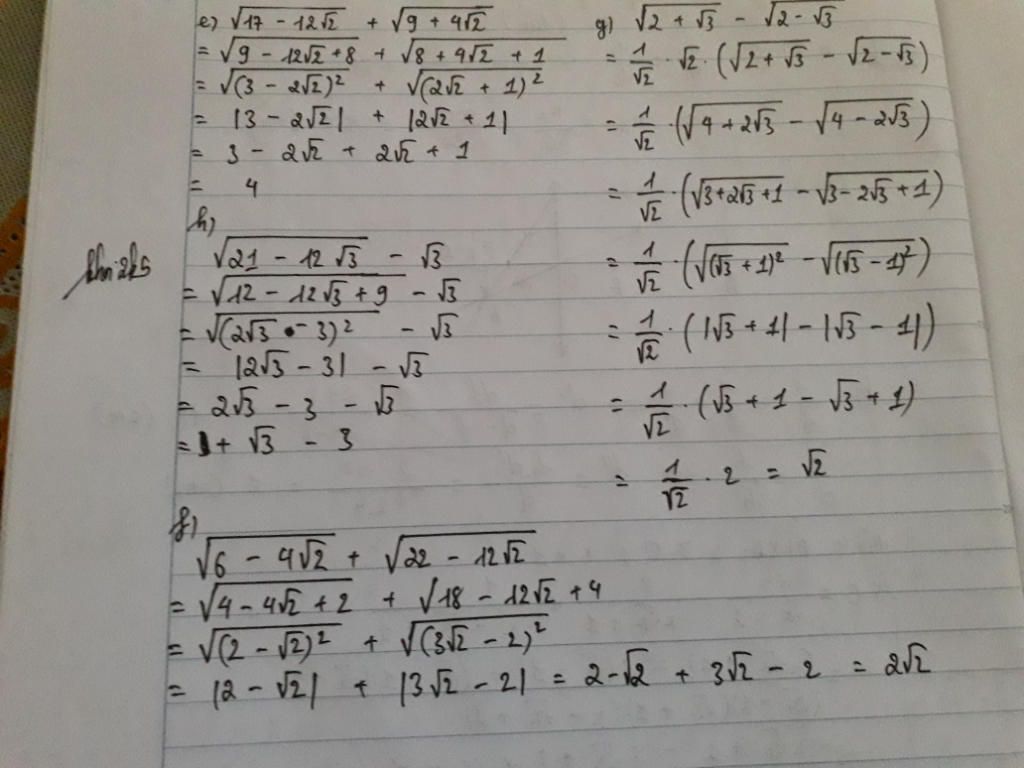 e) √(17 - 12√2) + √(9 + 4√2)
= √(9 - 12√2 + 8) + √(8 + 4√2 + 1)
= √((3 - 2√2)²) + √((2√2 + 1)²)
= |3 - 2√2| + |2√2 + 1|
= 3 - 2√2 + 2√2 + 1
= 4
h)
√(21 - 12√3) - √3
= √(12 - 12√3 + 9) - √3
= √((2√3 - 3)²) - √3
= |2√3 - 3| - √3
= 2√3 - 3 - √3
= + √3 - 3
g) √(2 + √3) - √(2 - √3)
= 1/√2 · √2 · (√(2 + √3) - √(2 - √3))
= 1/√2 · (√(4 + 2√3) - √(4 - 2√3))
= 1/√2 · (√(3 + 2√3 + 1) - √(3 - 2√3 + 1))
= 1/√2 · (√((√3 + 1)²) - √((√3 - 1)²))
= 1/√2 · (|√3 + 1| - |√3 - 1|)
= 1/√2 · (√3 + 1 - √3 + 1)
= 1/√2 · 2 = √2
f)
√(6 - 4√2) + √(22 - 12√2)
= √(4 - 4√2 + 2) + √18 - 12√2 + 4
= √((2 - √2)²) + √((3√2 - 2)²)
= |2 - √2| + |3√2 - 2| = 2 - √2 + 3√2 - 2 = 2√2